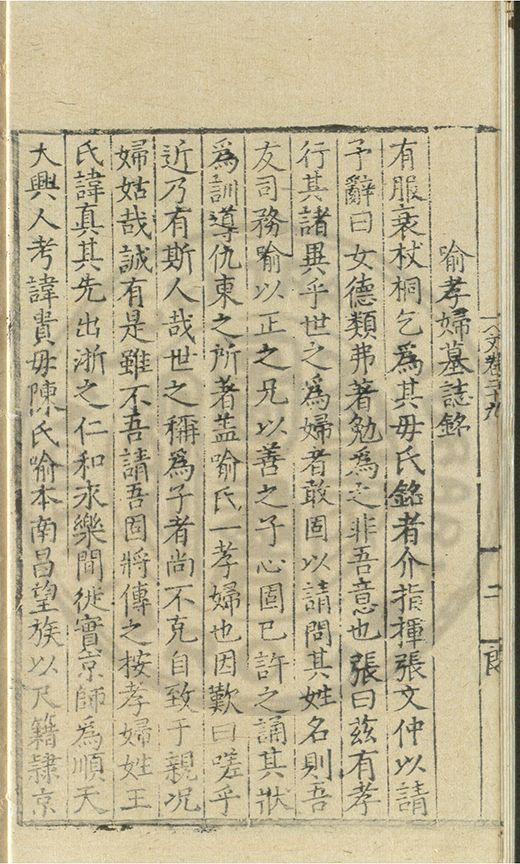 喻孝婦墓誌銘
有服衰杖桐乞爲其母氏銘者介指揮張文仲以請
予辭曰女德類弗著勉爲之非吾意也張曰茲有孝
行其諸異乎世之爲婦者敢固以請問其姓名則吾
友司務喻以正之兄以善之子心固已許之誦其狀
爲訓導仇東之所著盖喻氏一孝婦也因歎曰嗟乎
近乃有斯人哉世之稱爲子者尚不克自致于親况
婦姑哉誠有是雖不吾請吾固將傳之按孝婦姓王
氏諱真其先出浙之仁和永樂間徙實京師爲順天
大興人考諱貴母陳氏喻本南昌望族以尺籍隷京